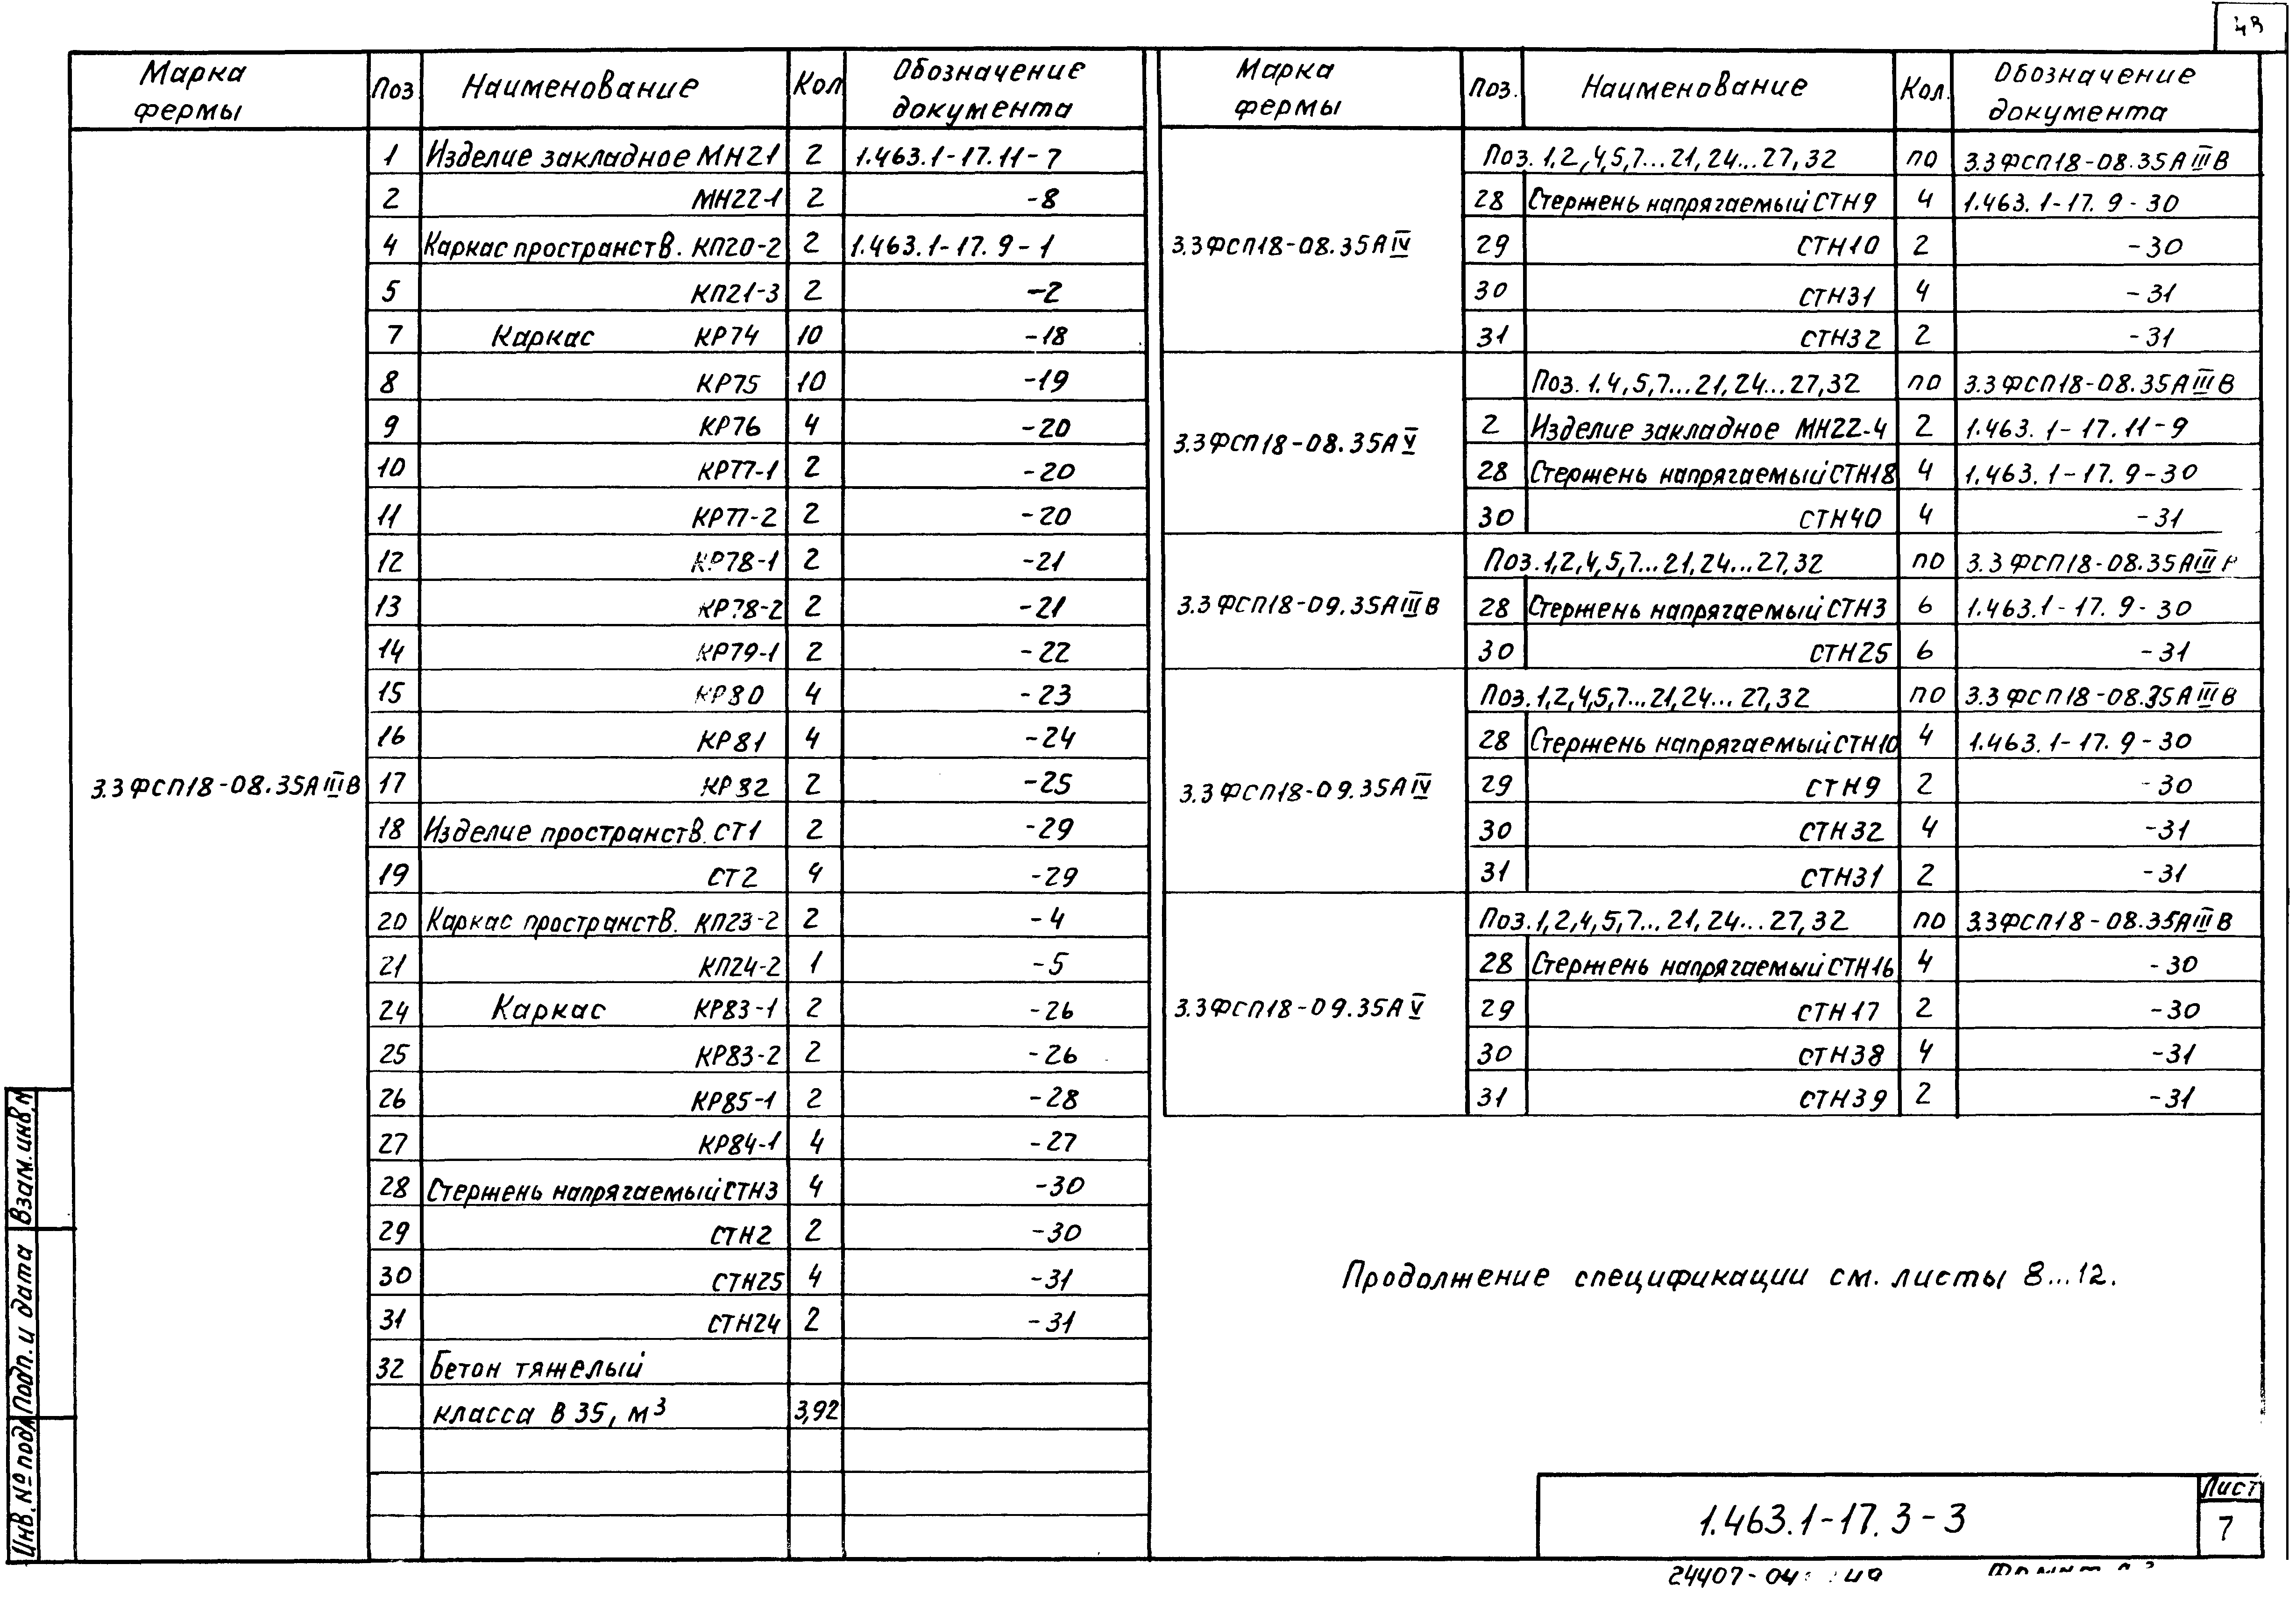 48
Марка фермы | Поз. | Наименование | Кол | Обозначение документа
3.3ФСП18-08.35АIIIВ
1 | Изделие закладное МН21 | 2 | 1.463.1-17.11-7
2 | МН22-1 | 2 | -8
4 | Каркас пространств. КП20-2 | 2 | 1.463.1-17.9-1
5 | КП21-3 | 2 | -2
7 | Каркас КР74 | 10 | -18
8 | КР75 | 10 | -19
9 | КР76 | 4 | -20
10 | КР77-1 | 2 | -20
11 | КР77-2 | 2 | -20
12 | КР78-1 | 2 | -21
13 | КР78-2 | 2 | -21
14 | КР79-1 | 2 | -22
15 | КР80 | 4 | -23
16 | КР81 | 4 | -24
17 | КР82 | 2 | -25
18 | Изделие пространств. СТ1 | 2 | -29
19 | СТ2 | 4 | -29
20 | Каркас пространств. КП23-2 | 2 | -4
21 | КП24-2 | 1 | -5
24 | Каркас КР83-1 | 2 | -26
25 | КР83-2 | 2 | -26
26 | КР85-1 | 2 | -28
27 | КР84-1 | 4 | -27
28 | Стержень напрягаемый СТН3 | 4 | -30
29 | СТН2 | 2 | -30
30 | СТН25 | 4 | -31
31 | СТН24 | 2 | -31
32 | Бетон тяжелый
класса В35, м³ | 3,92
Марка фермы | Поз. | Наименование | Кол. | Обозначение документа
3.3ФСП18-08.35АIV
Поз. 1,2,4,5,7...21,24...27,32 | по | 3.3ФСП18-08.35АIIIВ
28 | Стержень напрягаемый СТН9 | 4 | 1.463.1-17.9-30
29 | СТН10 | 2 | -30
30 | СТН31 | 4 | -31
31 | СТН32 | 2 | -31
3.3ФСП18-08.35АV
Поз. 1.4,5,7...21,24...27,32 | по | 3.3ФСП18-08.35АIIIВ
2 | Изделие закладное МН22-4 | 2 | 1.463.1-17.11-9
28 | Стержень напрягаемый СТН18 | 4 | 1.463.1-17.9-30
30 | СТН40 | 4 | -31
3.3ФСП18-09.35АIIIВ
Поз. 1,2,4,5,7...21,24...27,32 | по | 3.3ФСП18-08.35АIIIВ
28 | Стержень напрягаемый СТН3 | 6 | 1.463.1-17.9-30
30 | СТН25 | 6 | -31
3.3ФСП18-09.35АIV
Поз. 1,2,4,5,7...21,24...27,32 | по | 3.3ФСП18-08.35АIIIВ
28 | Стержень напрягаемый СТН10 | 4 | 1.463.1-17.9-30
29 | СТН9 | 2 | -30
30 | СТН32 | 4 | -31
31 | СТН31 | 2 | -31
3.3ФСП18-09.35АV
Поз. 1,2,4,5,7...21,24...27,32 | по | 3.3ФСП18-08.35АIIIВ
28 | Стержень напрягаемый СТН16 | 4 | -30
29 | СТН17 | 2 | -30
30 | СТН38 | 4 | -31
31 | СТН39 | 2 | -31
Продолжение спецификации см. листы 8...12.
Взам. инв. №
Подп. и дата
Инв. № подл
1.463.1-17.3-3
Лист
7
24407-04 49